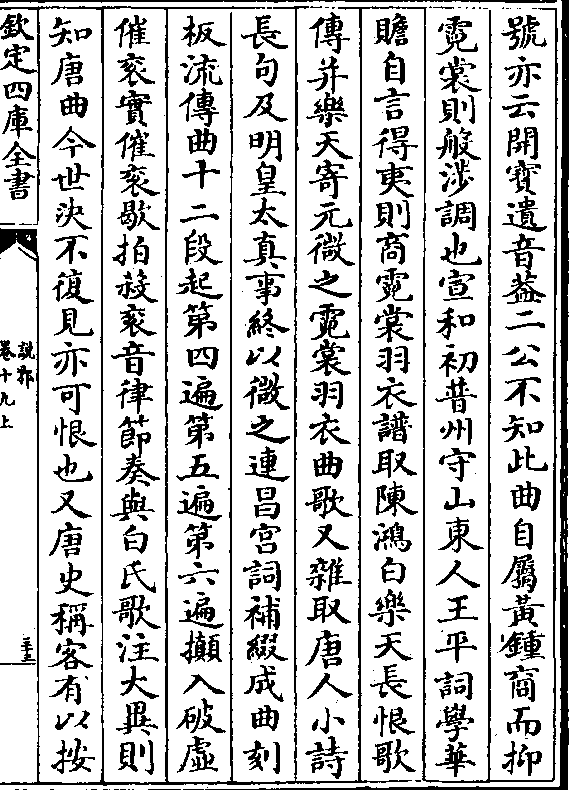 號亦云開寳遺音葢二公不知此曲自屬黃鍾商而抑
霓裳則般涉調也宣和初普州守山東人王平詞學華
贍自言得夷則商霓裳羽衣譜取陳鴻白樂天長恨歌
傳并樂天寄元微之霓裳羽衣曲歌又雜取唐人小詩
長句及明皇太真事終以微之連昌宫詞補綴成曲刻
板流傳曲十二段起第四遍第五遍第六遍攧入破虛
催衮實催衮歇拍殺衮音律節奏與白氏歌注大異則
知唐曲今世決不復見亦可恨也又唐史稱客有以按
欽定四庫全書
說郛
卷十九上
三十三